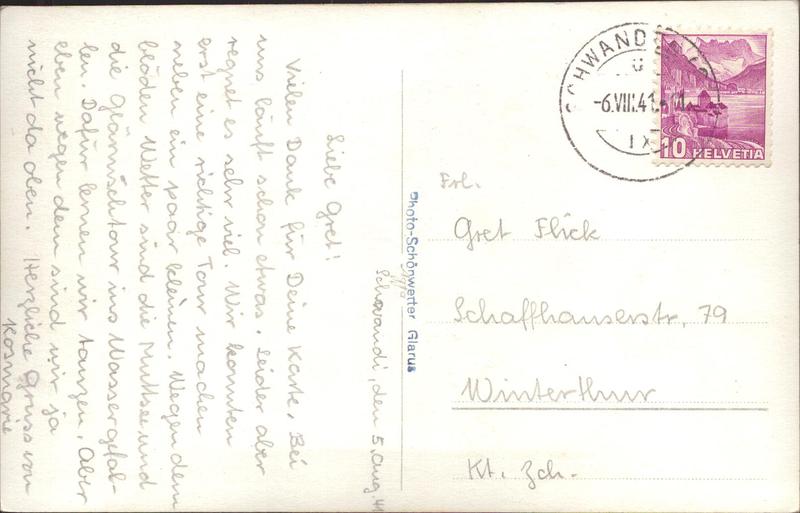 Schwandi, den 5. Aug. 41
Liebe Gret!
Vielen Dank für Deine Karte. Bei
uns läuft schon etwas. Leider aber
regnet es sehr viel. Wir konnten
erst eine richtige Tour machen
neben ein paar kleinen. Wegen dem
blöden Wetter sind die Muttsee und
die Glärnischtour ins Wasser gefal-
len. Dafür lernen wir tanzen. Aber
eben wegen dem sind wir ja
nicht da oben. Herzliche Grüsse von
Rosmarie
Photo-Schönwetter Glarus
SCHWANDEN
-6.VIII.41
HELVETIA
10
Frl.
Gret Flick
Schaffhauserstr. 79
Winterthur
Kt. Zch.